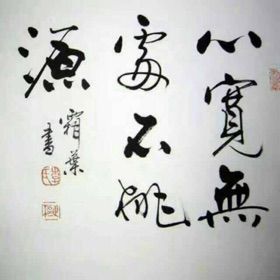 心寬無
處不桃
源
霜葉
書